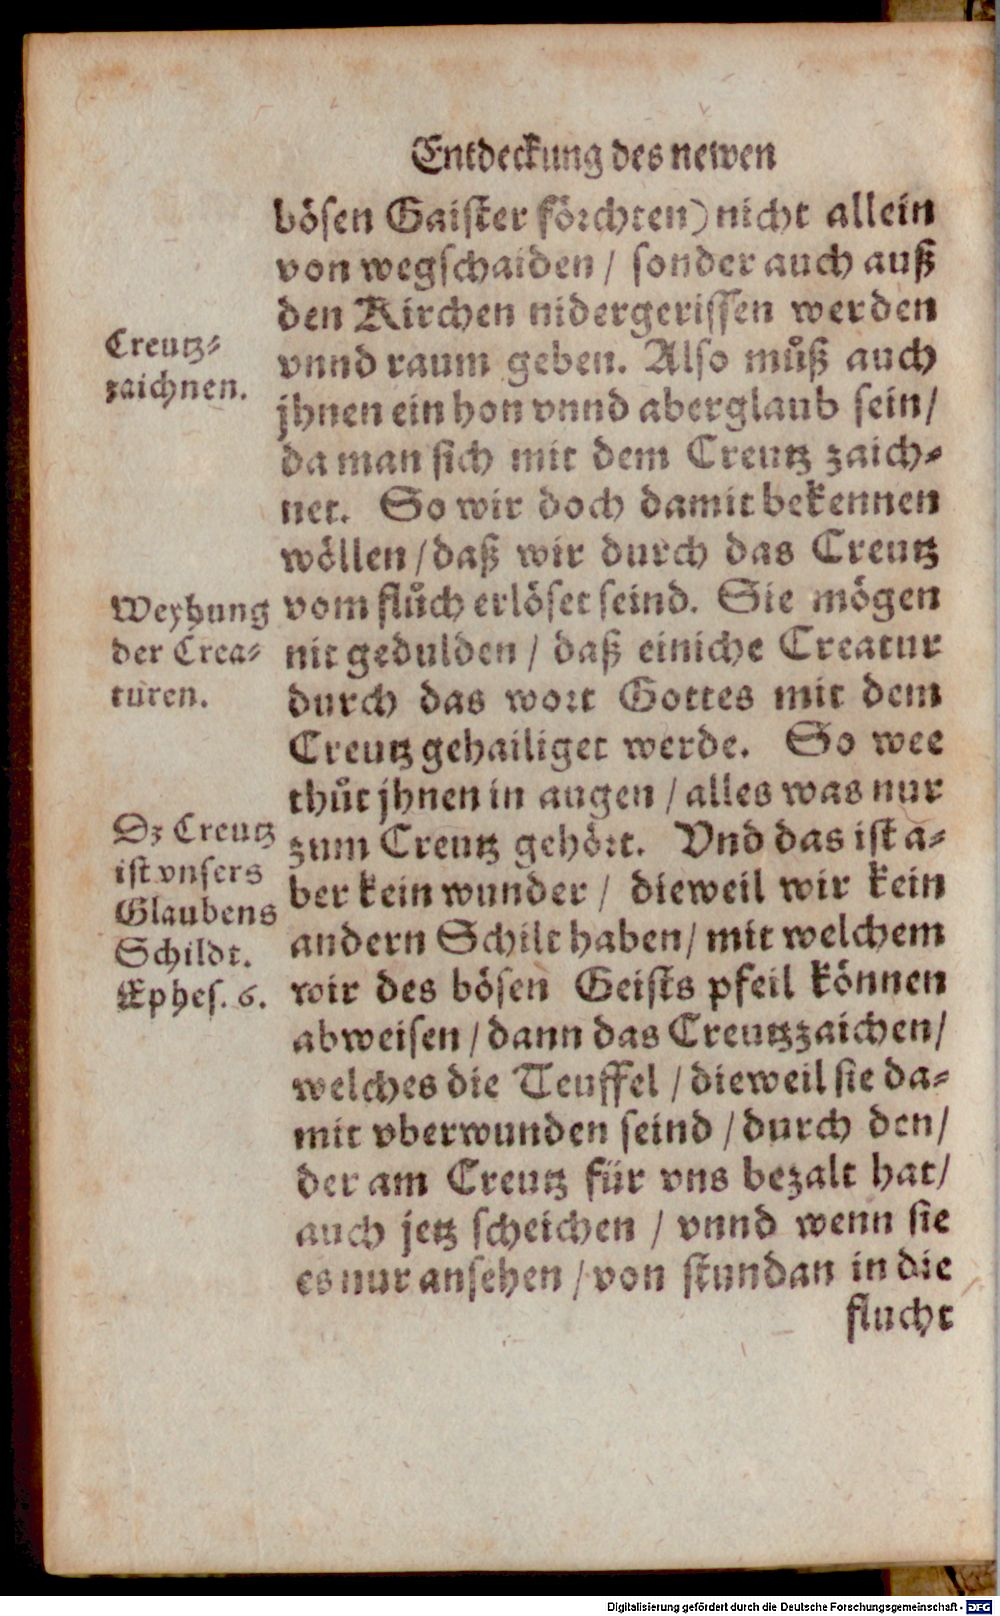 Entdeckung des newen
bösen Gaister förchten) nicht allein
von wegschaiden / sonder auch auß
den Kirchen nidergerissen werden
vnnd raum geben. Also můß auch
jhnen ein hon vnnd aberglaub sein/
da man sich mit dem Creutz zaich-
net. So wir doch damit bekennen
wöllen / daß wir durch das Creutz
vom flůch erlöset seind. Sie mögen
nit gedulden / daß einiche Creatur
durch das wort Gottes mit dem
Creutz gehailiget werde. So wee
thůt jhnen in augen / alles was nur
zum Creutz gehört. Vnd das ist a-
ber kein wunder / dieweil wir kein
andern Schilt haben / mit welchem
wir des bösen Geists pfeil können
abweisen / dann das Creutzzaichen/
welches die Teuffel / dieweil sie da-
mit vberwunden seind / durch den/
der am Creutz für vns bezalt hat/
auch jetz scheichen / vnnd wenn sie
es nur ansehen / von stundan in die
flucht
Creutz-
zaichnen.
Weyhung
der Crea-
turen.
Dz Creutz
ist vnsers
Glaubens
Schildt.
Ephes. 6.
Digitalisierung gefördert durch die Deutsche Forschungsgemeinschaft - DFG